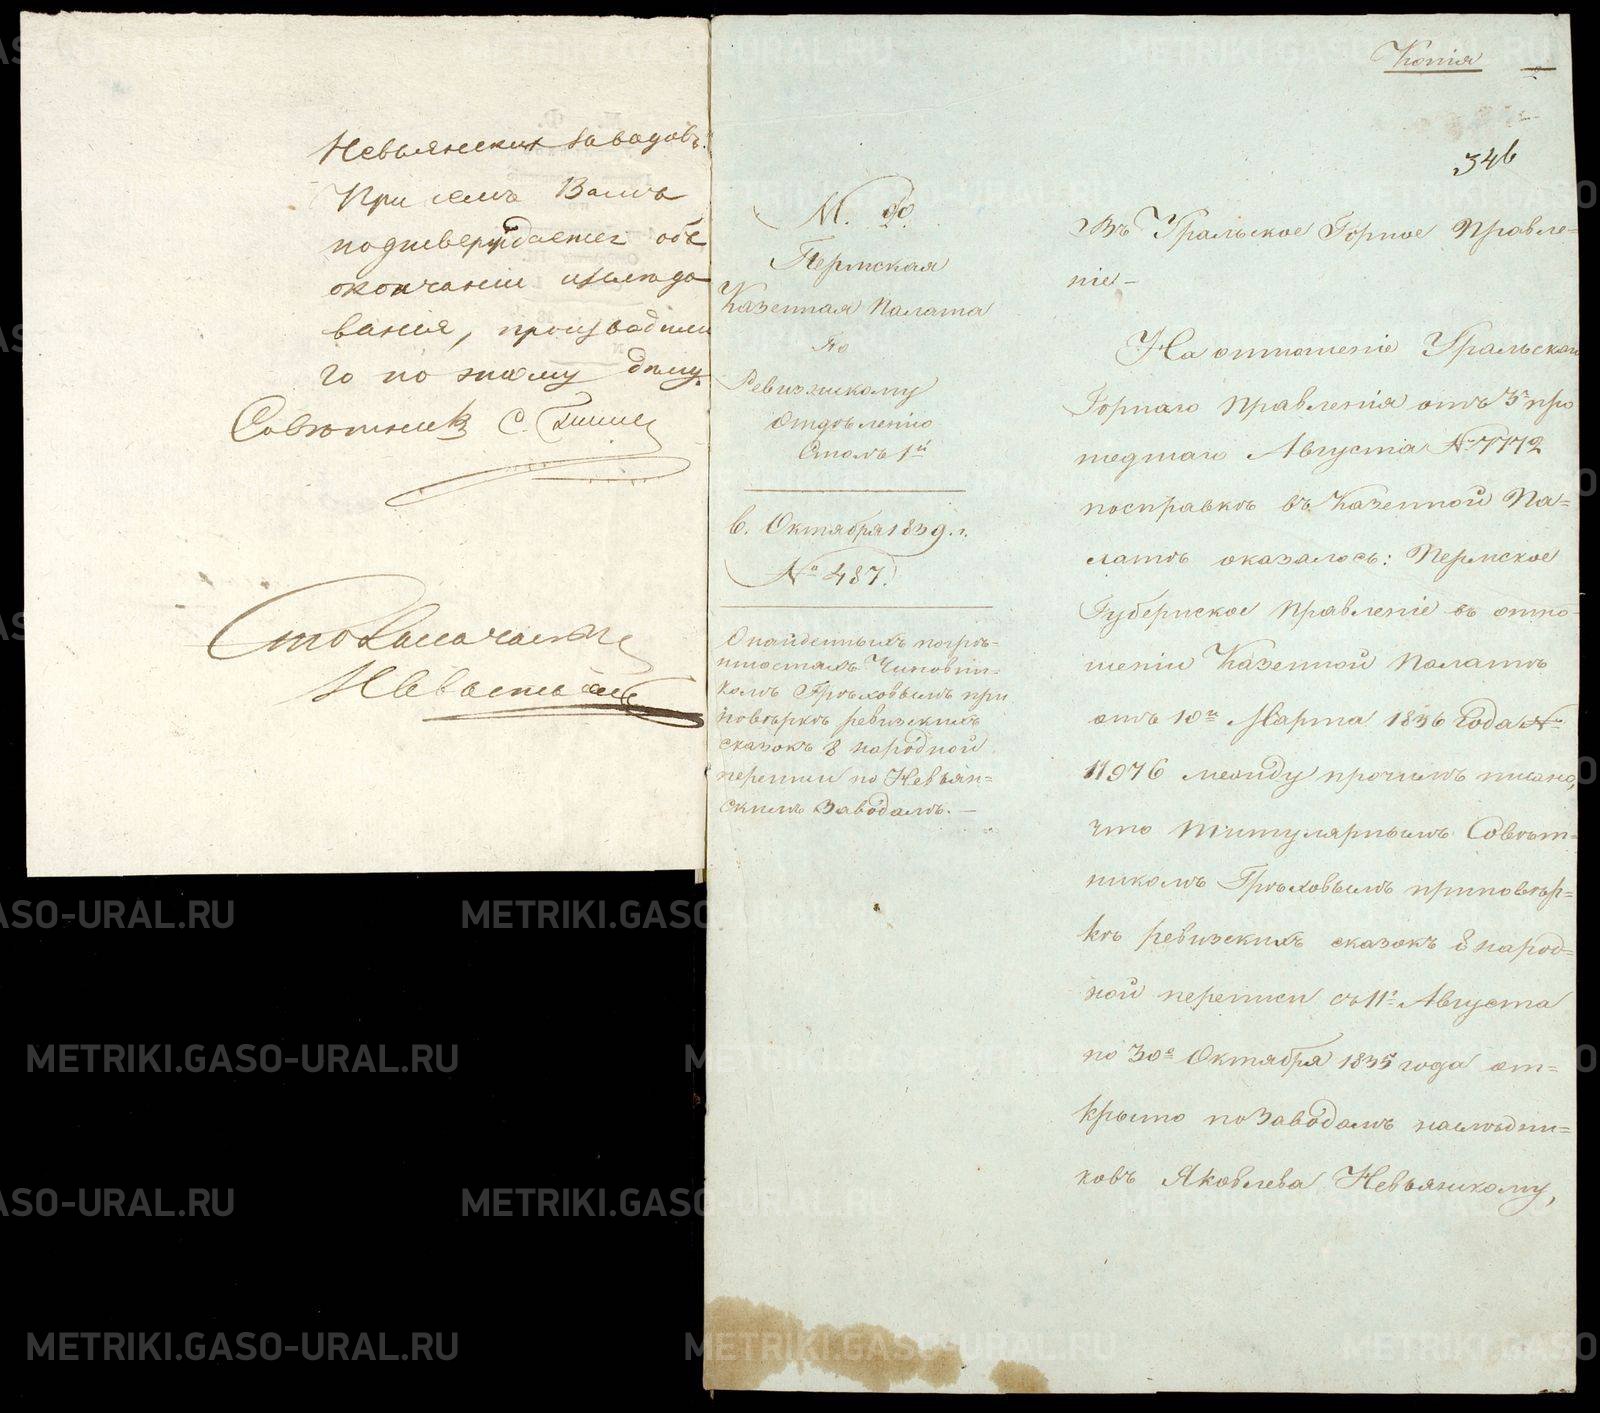 Невьянских заводовъ.
При семъ Вамъ
подтверждается объ
окончании изследо
вания, производима
го по этому делу.
Советникъ С.
Столоначальник
Копія
346
М. Ф.
Пермская
Казенная Палата
По
Ревизскому
Отдѣленію
Столъ 1й
6. Октября 1839. г.
№ 487.
О найденныхъ погрѣ-
шностяхъ Чиновни-
комъ Грѣховымъ при
повѣркѣ ревизскихъ
сказокъ 8 народной
переписи по Невьян=
скимъ Заводамъ. —
Въ Уральское Горное Правле=
ніе —
На отношеніе Уральскаго
Горнаго Правленія отъ 3го про
шедшаго Августа № 7772
по справкѣ въ Казенной Па=
латѣ оказалось: Пермское
Губернское Правленіе въ отно-
шеніи Казенной Палатѣ
отъ 10го Марта 1836 года №
11976 между прочимъ писано,
что Титулярнымъ Совѣт-
никомъ Грѣховымъ при повѣр=
кѣ ревизскихъ сказокъ 8 народ=
ной переписи съ 11го Августа
по 30е Октября 1835 года от=
крыто по Заводамъ наслѣдни=
ковъ Яковлева Невьянскому,
METRIKI.GASO-URAL.RU